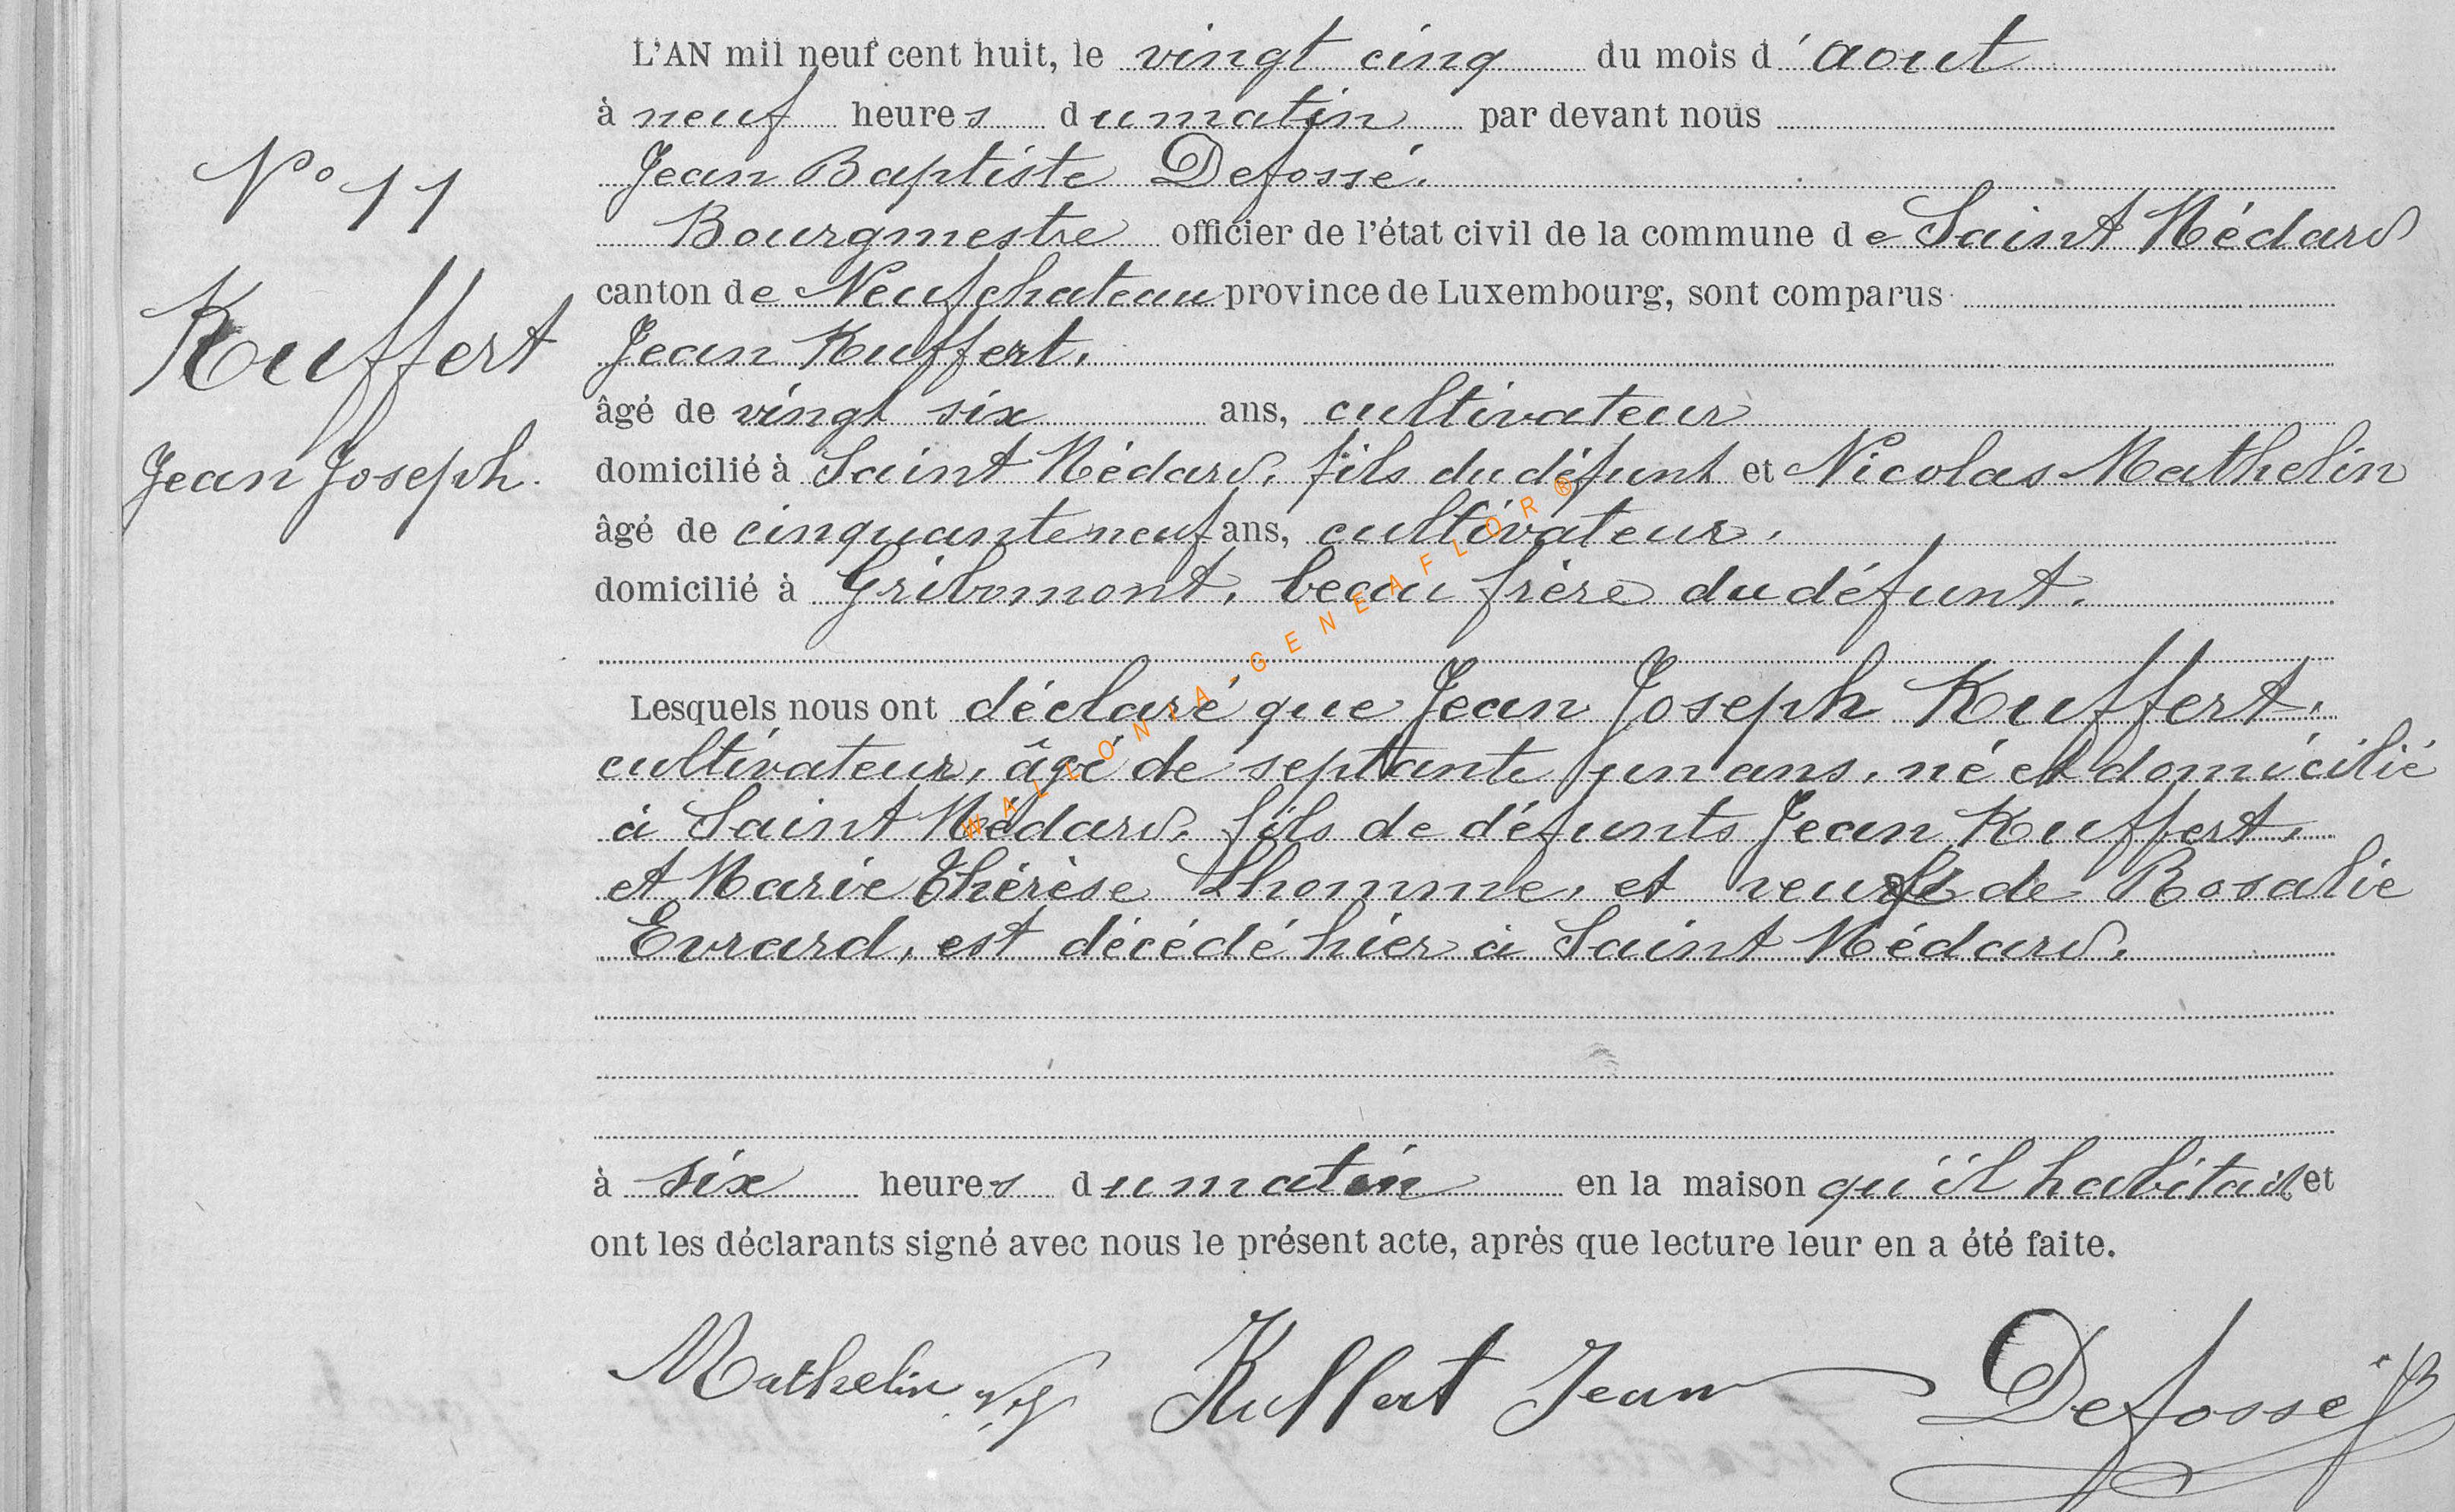 L'AN mil neuf cent huit, le vingt cinq du mois d'aout
à neuf heures du matin par devant nous
Jean Baptiste Defossé.
N° 11
Bourgmestre officier de l'état civil de la commune de Saint Médard
canton de Neufchateau province de Luxembourg, sont comparus
Kuffert
Jean Kuffert,
âgé de vingt six ans, cultivateur
Jean Joseph.
domicilié à Saint Médard, fils du défunt et Nicolas Mathelin
âgé de cinquante neuf ans, cultivateur,
domicilié à Gribomont, beau frère du défunt.
Lesquels nous ont déclaré que Jean Joseph Kuffert,
cultivateur, âgé de septante un ans, né et domicilié
à Saint Médard, fils de défunts Jean Kuffert,
et Marie Thérèse Lhomme, et veuf de Rosalie
Evrard, est décédé hier à Saint Médard.
à six heures du matin en la maison qu'il habitait et
ont les déclarants signé avec nous le présent acte, après que lecture leur en a été faite.
Mathelin Kuffert Jean Defossé JB
WALLONIA-GENEAFLOR®